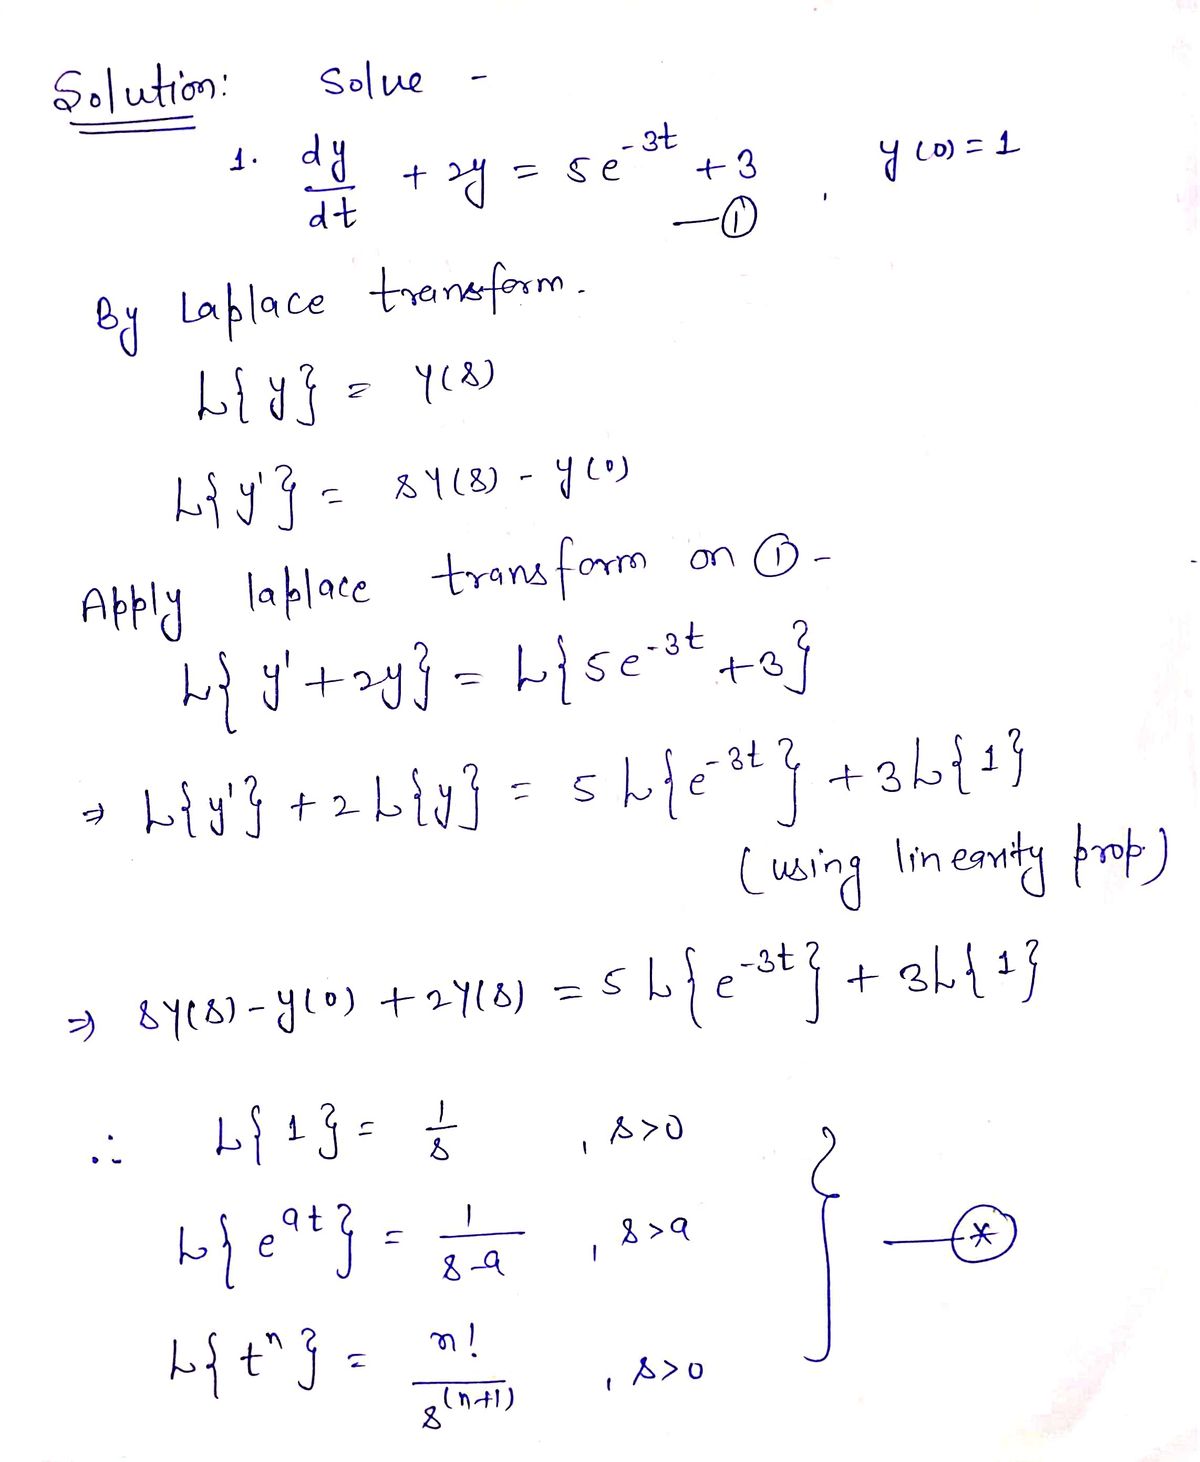 Solution: Solve -
1. dy/dt + 2y = 5e^{-3t} + 3 , y(0) = 1
—①
By Laplace transform.
L{y} = Y(s)
L{y'} = sY(s) - y(0)
Apply laplace transform on ① -
L{y' + 2y} = L{5e^{-3t} + 3}
⇒ L{y'} + 2L{y} = 5L{e^{-3t}} + 3L{1}
(using linearity prop.)
⇒ sY(s) - y(0) + 2Y(s) = 5L{e^{-3t}} + 3L{1}
∴ L{1} = 1/s , s>0
L{e^{at}} = 1/(s-a) , s>a —(*)
L{t^n} = n!/s^{(n+1)} , s>0